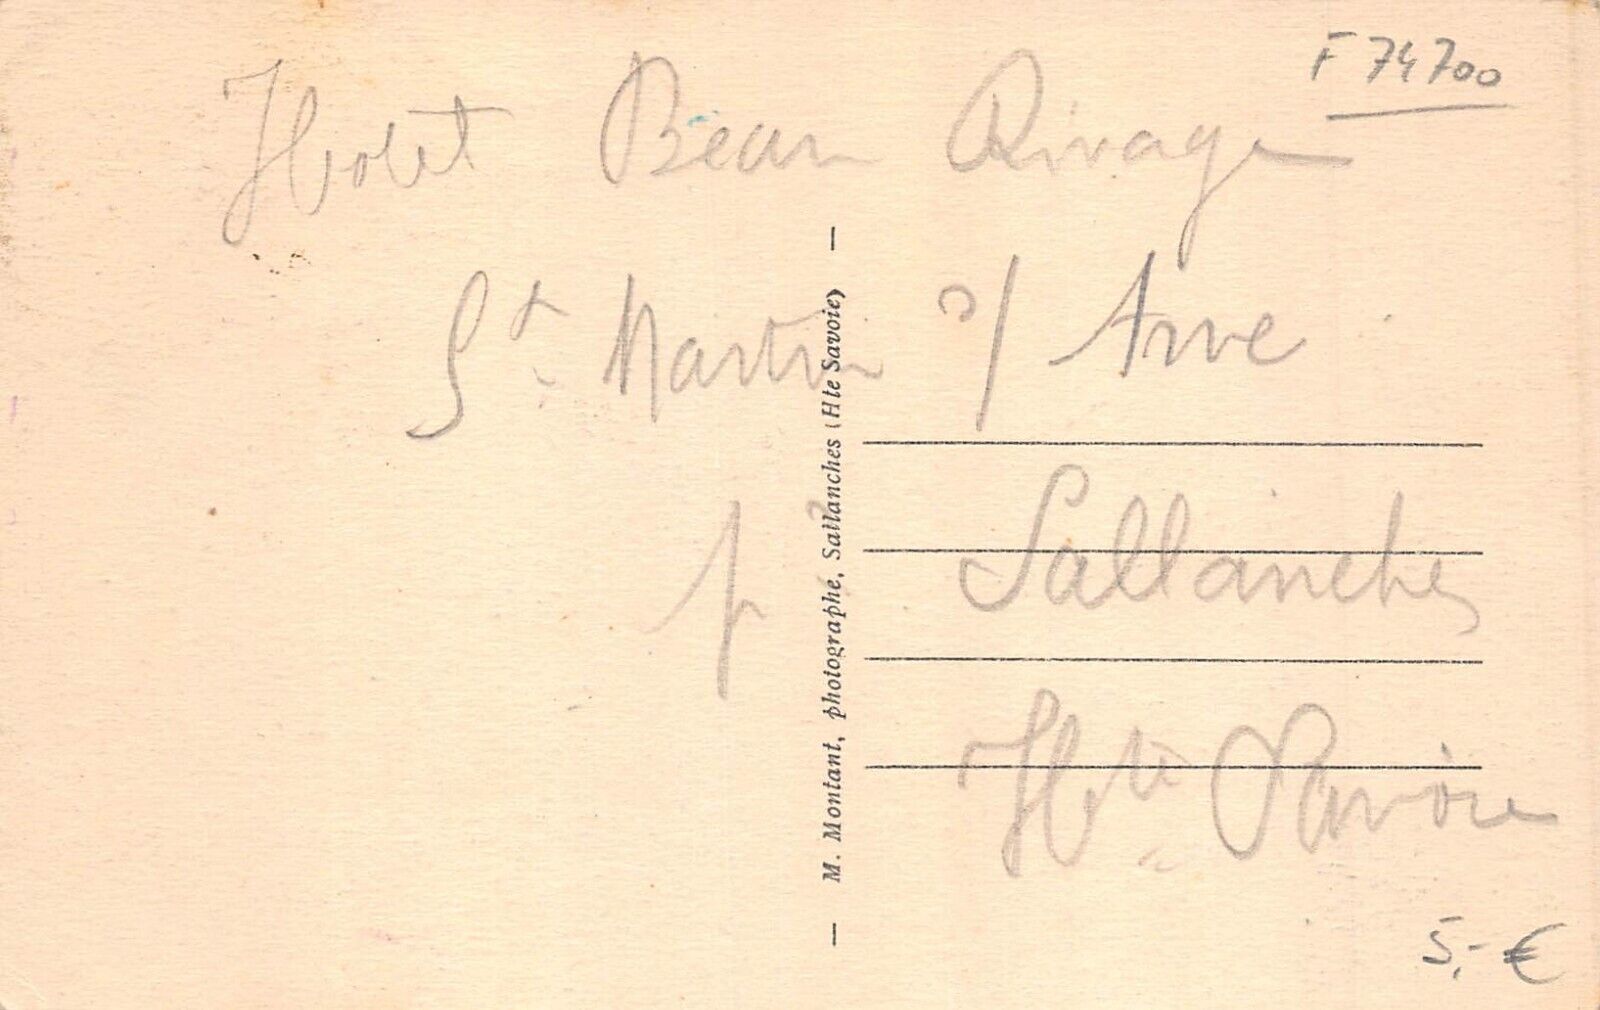 F 74700
Hotel Beau Rivage
St Martin s/ Arve
pr Sallanches
Hte Savoie
— M. Montant, photographe, Sallanches (Hte Savoie) —
5,- €